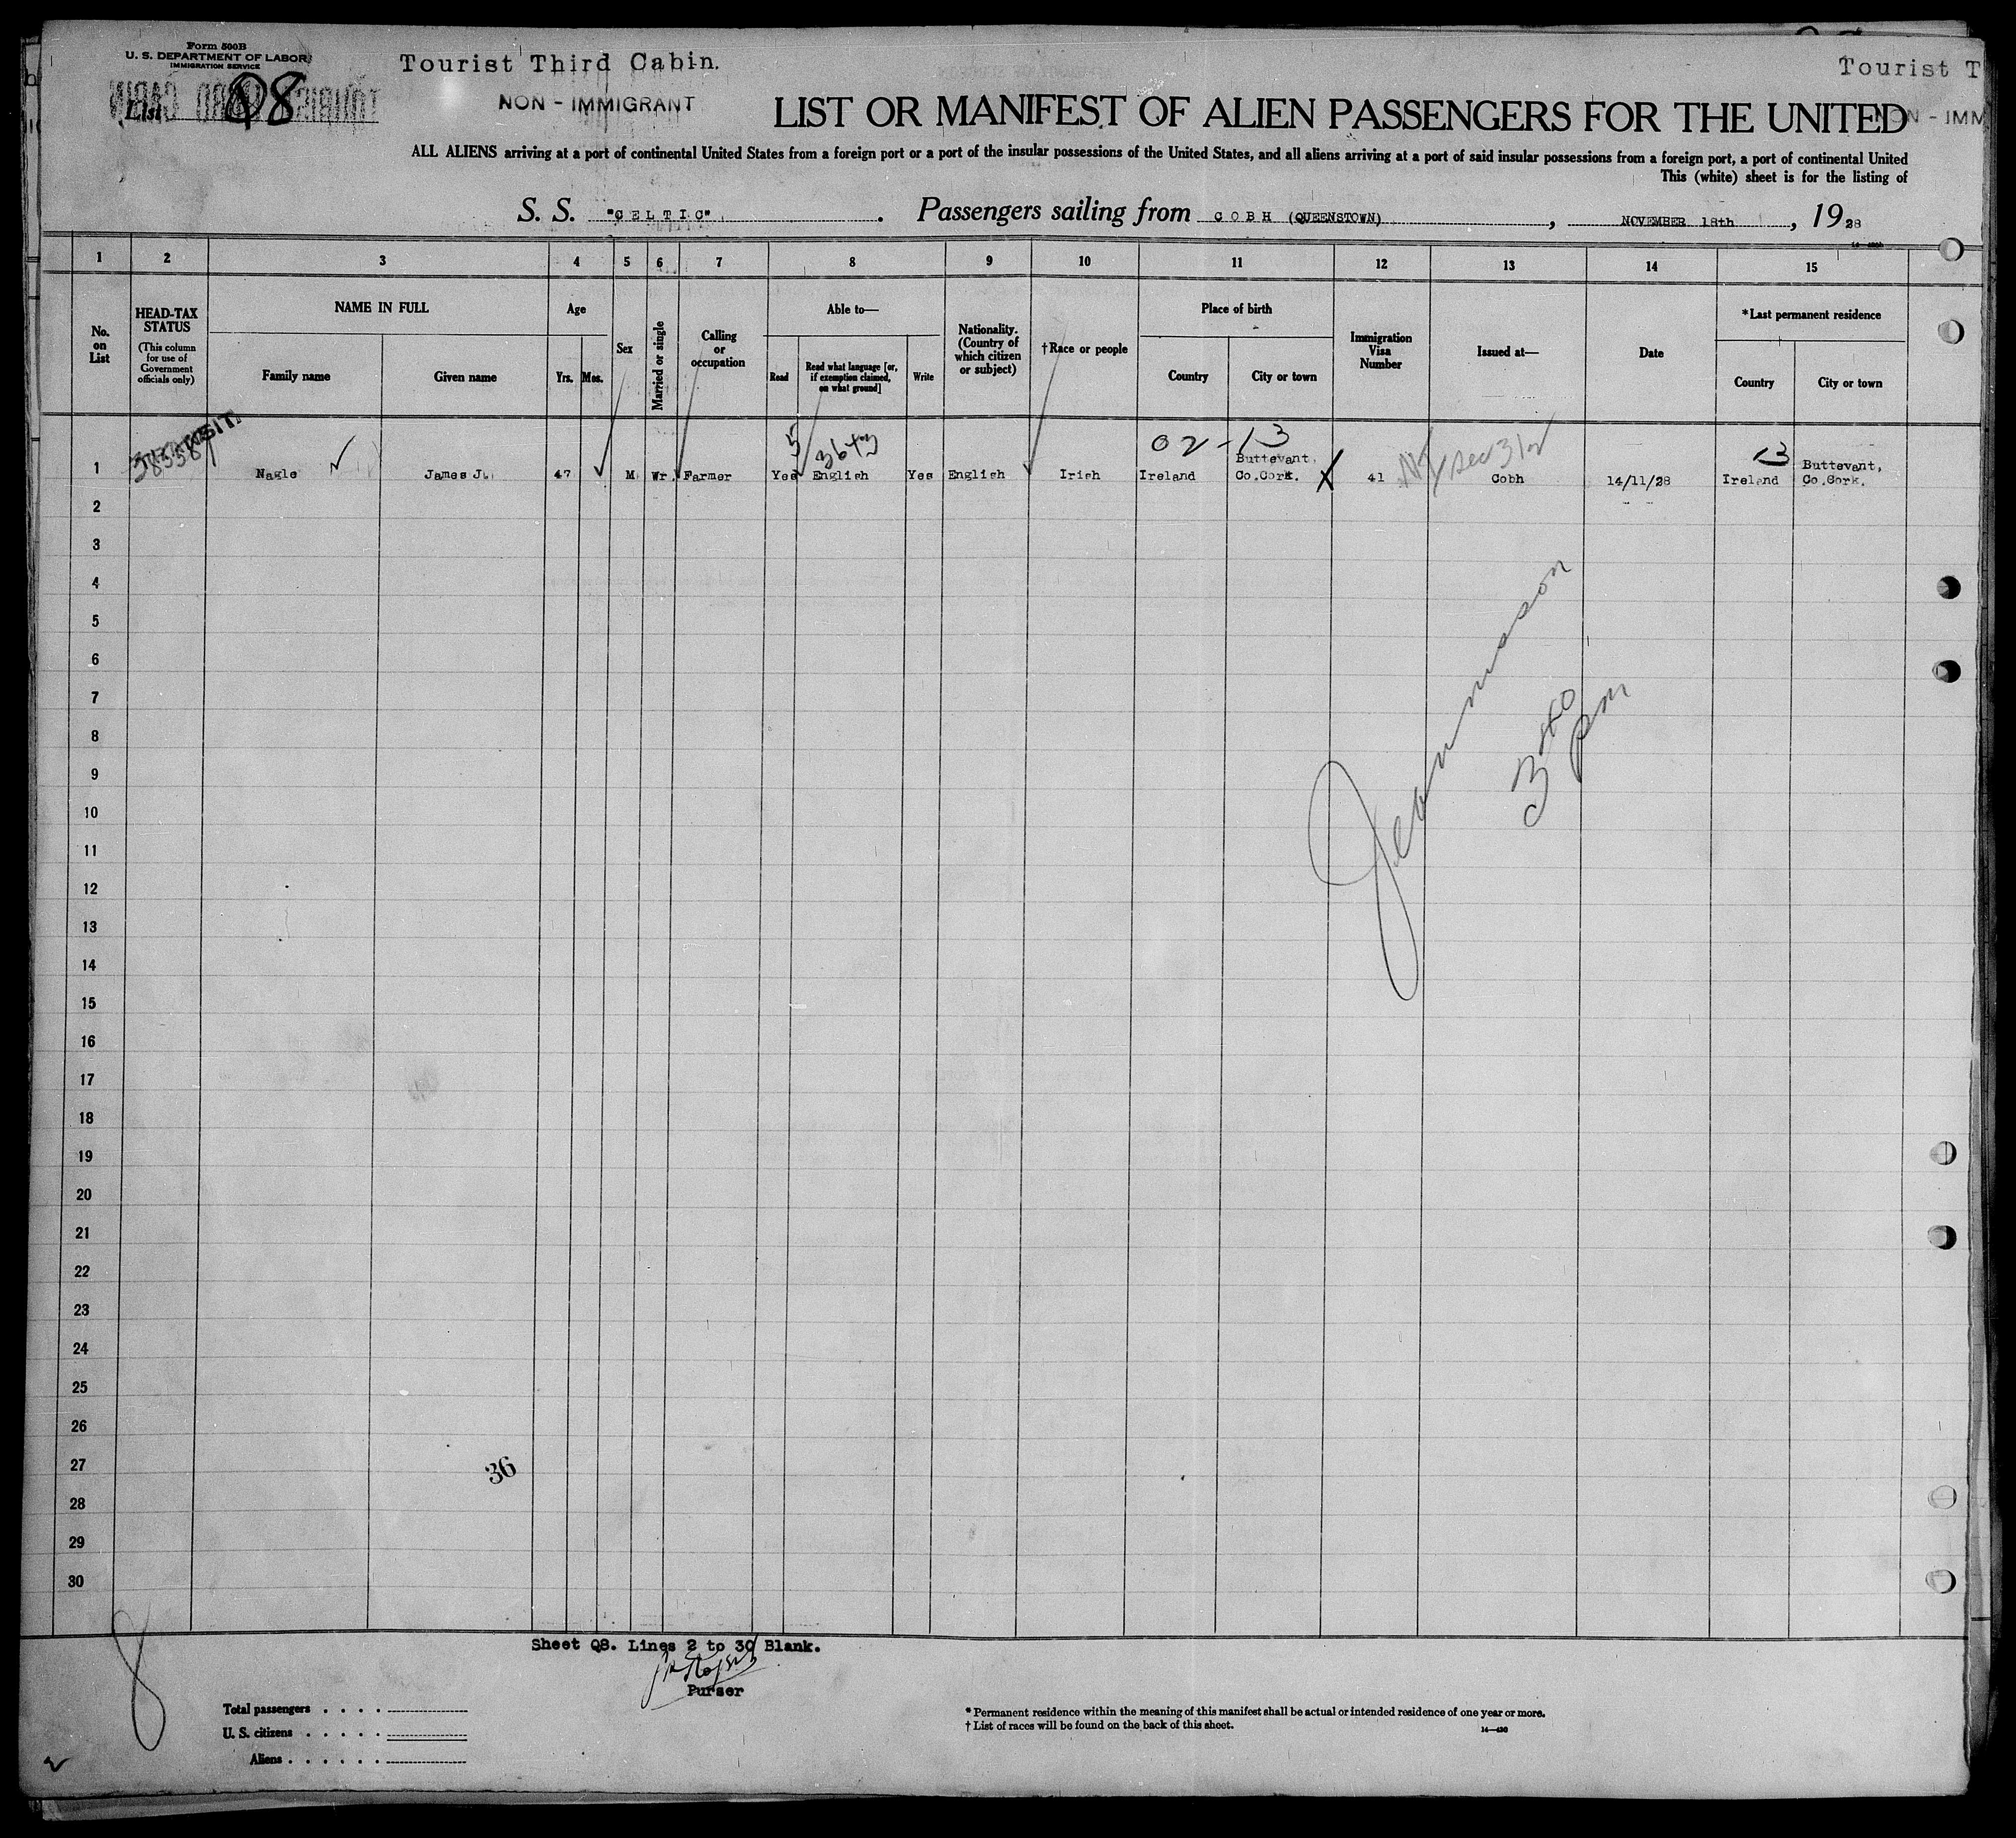 Form 500B
U. S. DEPARTMENT OF LABOR
IMMIGRATION SERVICE
List 98
Tourist Third Cabin.
NON - IMMIGRANT
Tourist T
NON - IMM
LIST OR MANIFEST OF ALIEN PASSENGERS FOR THE UNITED
ALL ALIENS arriving at a port of continental United States from a foreign port or a port of the insular possessions of the United States, and all aliens arriving at a port of said insular possessions from a foreign port, a port of continental United
This (white) sheet is for the listing of
S. S. "CELTIC". Passengers sailing from COBH (QUEENSTOWN), NOVEMBER 18th, 1928
1 2 3 4 5 6 7 8 9 10 11 12 13 14 15
No. on List
HEAD-TAX STATUS
(This column for use of Government officials only)
NAME IN FULL
Family name
Given name
Age
Yrs. Mos.
Sex
Married or single
Calling or occupation
Able to—
Read
Read what language [or, if exemption claimed, on what ground]
Write
Nationality. (Country of which citizen or subject)
†Race or people
Place of birth
Country
City or town
Immigration Visa Number
Issued at—
Date
*Last permanent residence
Country
City or town
TRANSIT.
5
02-13
13
1 Nagle James J. 47 M Wr. Farmer Yes English Yes English Irish Ireland Buttevant, Co.Cork. 41 Cobh 14/11/28 Ireland Buttevant, Co.Cork.
2
3
4
5
6
7
8
9
10
11
12
13
14
15
16
17
18
19
20
21
22
23
24
25
26
27
28
29
30
3 40
pm
36
8
Sheet Q8. Lines 2 to 30 Blank.
Purser
Total passengers . . . .
U. S. citizens . . . . .
Aliens . . . . . .
* Permanent residence within the meaning of this manifest shall be actual or intended residence of one year or more.
† List of races will be found on the back of this sheet.
14—430